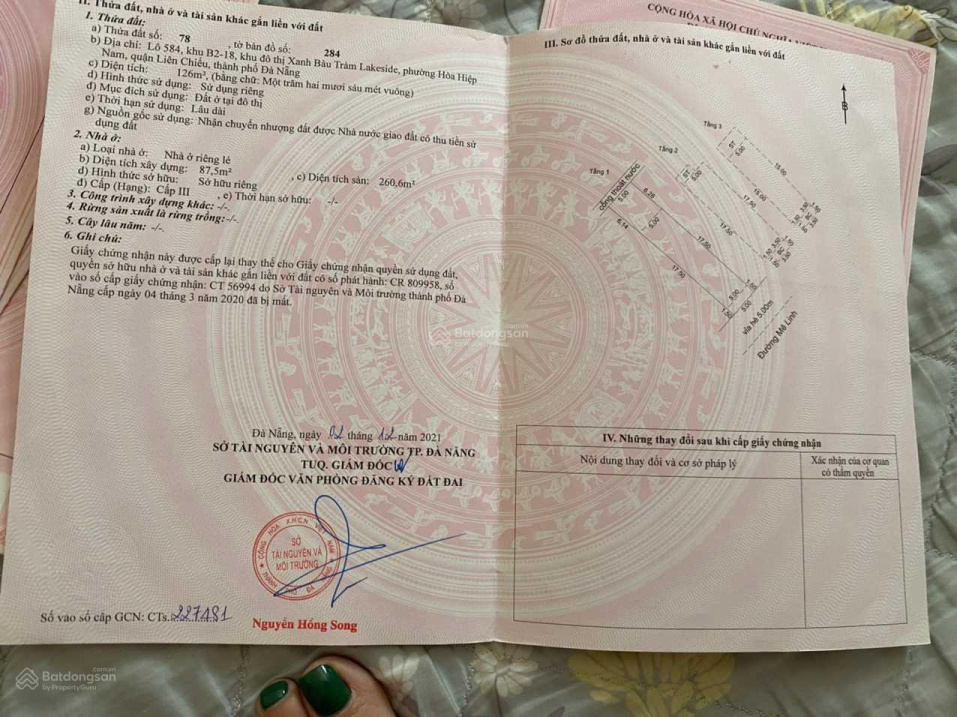 II. Thửa đất, nhà ở và tài sản khác gắn liền với đất
1. Thửa đất:
a) Thửa đất số: 78 , tờ bản đồ số: 284
b) Địa chỉ: Lô 584, khu B2-18, khu đô thị Xanh Bàu Tràm Lakeside, phường Hòa Hiệp
Nam, quận Liên Chiểu, thành phố Đà Nẵng
c) Diện tích: 126m², (bằng chữ: Một trăm hai mươi sáu mét vuông)
d) Hình thức sử dụng: Sử dụng riêng
đ) Mục đích sử dụng: Đất ở tại đô thị
e) Thời hạn sử dụng: Lâu dài
g) Nguồn gốc sử dụng: Nhận chuyển nhượng đất được Nhà nước giao đất có thu tiền sử
dụng đất
2. Nhà ở:
a) Loại nhà ở: Nhà ở riêng lẻ
b) Diện tích xây dựng: 87,5m² , c) Diện tích sàn: 260,6m²
d) Hình thức sở hữu: Sở hữu riêng
đ) Cấp (Hạng): Cấp III , e) Thời hạn sở hữu: -/-
3. Công trình xây dựng khác: -/-
4. Rừng sản xuất là rừng trồng:-/-
5. Cây lâu năm: -/-
6. Ghi chú:
Giấy chứng nhận này được cấp lại thay thế cho Giấy chứng nhận quyền sử dụng đất,
quyền sở hữu nhà ở và tài sản khác gắn liền với đất có số phát hành: CR 809958, số
vào sổ cấp giấy chứng nhận: CT 56994 do Sở Tài nguyên và Môi trường thành phố Đà
Nẵng cấp ngày 04 tháng 3 năm 2020 đã bị mất.
Đà Nẵng, ngày 02 tháng 12 năm 2021
SỞ TÀI NGUYÊN VÀ MÔI TRƯỜNG TP. ĐÀ NẴNG
TUQ. GIÁM ĐỐC
GIÁM ĐỐC VĂN PHÒNG ĐĂNG KÝ ĐẤT ĐAI
CỘNG HÒA X.H.C.N VIỆT NAM
SỞ
TÀI NGUYÊN VÀ
MÔI TRƯỜNG
Nguyễn Hồng Song
Số vào sổ cấp GCN: CTs.227181
CỘNG HÒA XÃ HỘI CHỦ NGHĨA
III. Sơ đồ thửa đất, nhà ở và tài sản khác gắn liền với đất
B
Tầng 3
ST
5.00
16.00
Tầng 2
ST
5.00
16.00
17.50
Tầng 1
cống thoát nước
5.00
6.28
5.00
6.14
17.50
17.50
17.50
5.00
5.00
vỉa hè 5.00m
Đường Mê Linh
IV. Những thay đổi sau khi cấp giấy chứng nhận
Nội dung thay đổi và cơ sở pháp lý
Xác nhận của cơ quan
có thẩm quyền
Batdongsan
.com.vn
by PropertyGuru
Batdongsan
.com.vn
by PropertyGuru